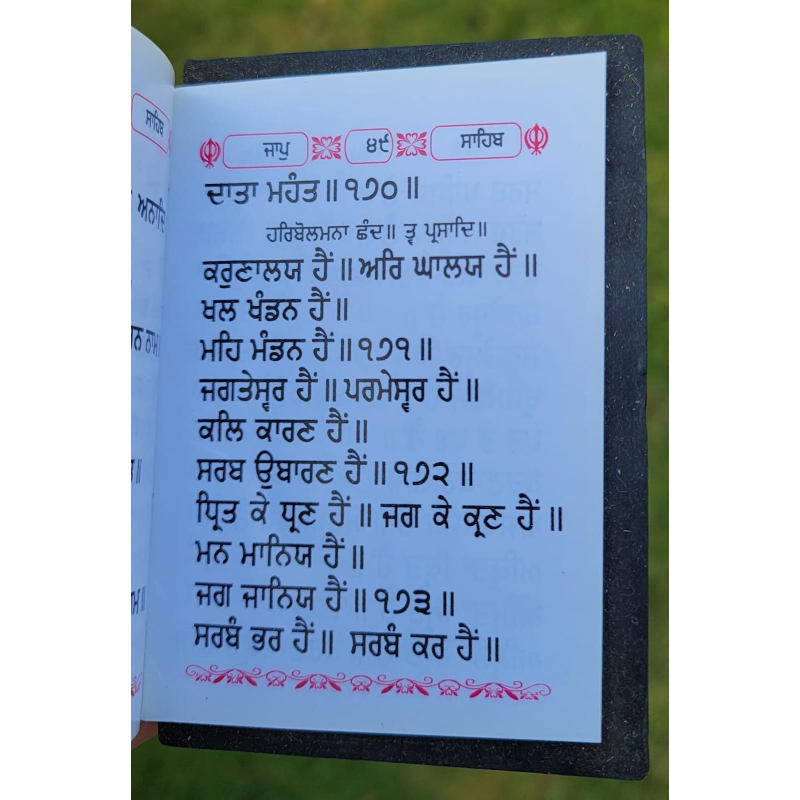 ਸਾਹਿਬ
ਅਨਾਦਿ
ਨ ਨਾਮ॥
ਜਾਪੁ ੪੯ ਸਾਹਿਬ
ਦਾਤਾ ਮਹੰਤ॥੧੭੦॥
ਹਰਿਬੋਲਮਨਾ ਛੰਦ॥ ਤ੍ਵ ਪ੍ਰਸਾਦਿ॥
ਕਰੁਣਾਲਯ ਹੈਂ॥ਅਰਿ ਘਾਲਯ ਹੈਂ॥
ਖਲ ਖੰਡਨ ਹੈਂ॥
ਮਹਿ ਮੰਡਨ ਹੈਂ॥੧੭੧॥
ਜਗਤੇਸ੍ਵਰ ਹੈਂ॥ਪਰਮੇਸ੍ਵਰ ਹੈਂ॥
ਕਲਿ ਕਾਰਣ ਹੈਂ॥
ਸਰਬ ਉਬਾਰਣ ਹੈਂ॥੧੭੨॥
ਧ੍ਰਿਤ ਕੇ ਧ੍ਰਣ ਹੈਂ॥ ਜਗ ਕੇ ਕ੍ਰਣ ਹੈਂ॥
ਮਨ ਮਾਨਿਯ ਹੈਂ॥
ਜਗ ਜਾਨਿਯ ਹੈਂ॥੧੭੩॥
ਸਰਬੰ ਭਰ ਹੈਂ॥ ਸਰਬੰ ਕਰ ਹੈਂ॥